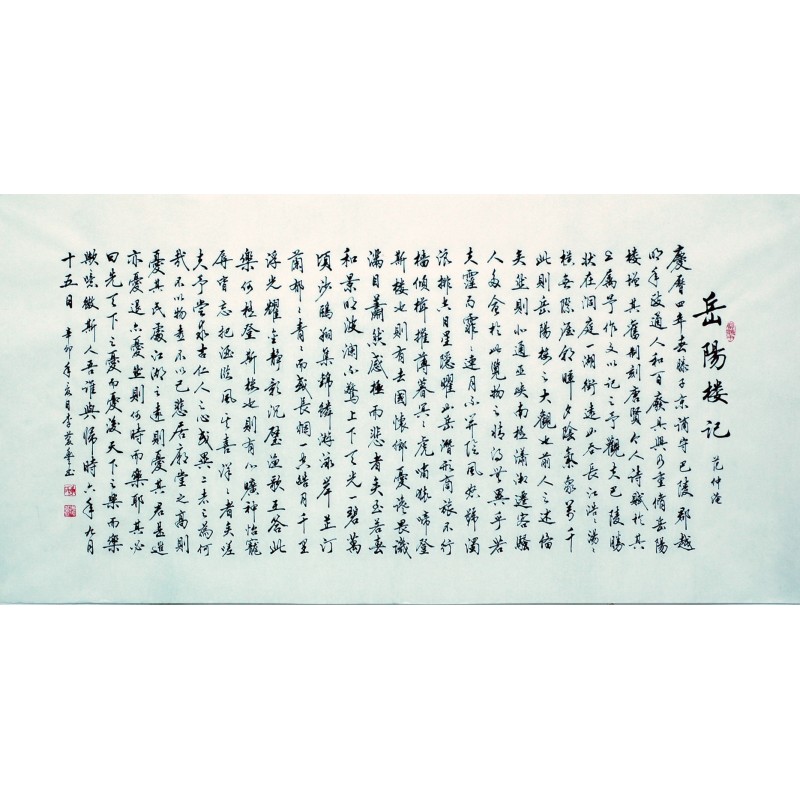 岳陽楼记
范仲淹
慶曆四年春滕子京谪守巴陵郡越
明年政通人和百廢具興乃重脩岳陽
楼增其舊制刻唐贤今人诗賦於其
上属予作文以记之予觀夫巴陵勝
状在洞庭一湖銜遠山吞長江浩浩湯湯
横無際涯朝暉夕陰氣象萬千
此則岳陽楼之大觀也前人之述備
矣然則北通巫峡南極瀟湘遷客騷
人多會於此覧物之情得無異乎若
夫霪雨霏霏連月不開陰風怒號濁
浪排空日星隱曜山岳潛形商旅不行
樯傾楫摧薄暮冥冥虎嘯猿啼登
斯楼也則有去國懷鄉憂讒畏譏
滿目蕭然感極而悲者矣至若春
和景明波澜不驚上下天光一碧萬
頃沙鷗翔集錦鱗游泳岸芷汀
蘭郁郁青青而或長烟一空皓月千里
浮光耀金静影沉璧渔歌互答此
樂何極登斯楼也則有心曠神怡寵
辱皆忘把酒临风其喜洋洋者矣嗟
夫予嘗求古仁人之心或異二者之為何
哉不以物喜不以己悲居廟堂之高則
憂其民處江湖之遠則憂其君是進
亦憂退亦憂然則何時而樂耶其必
曰先天下之憂而憂後天下之樂而樂
歟噫微斯人吾誰與歸時六年九月
十五日 辛卯年